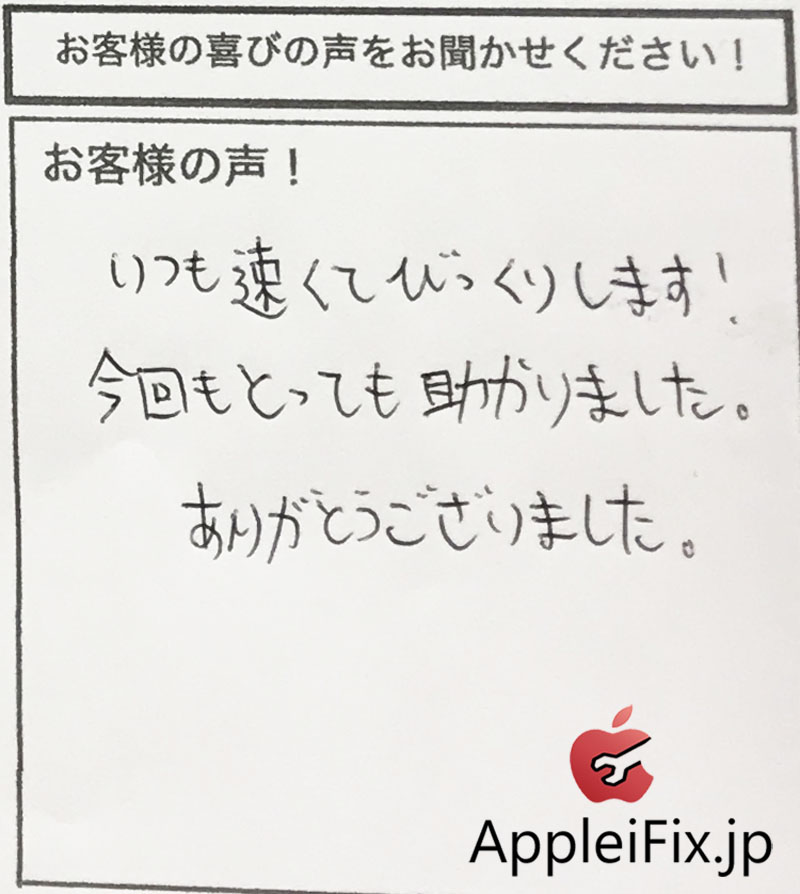 お客様の喜びの声をお聞かせください！
お客様の声！
いつも速くてびっくりします！
今回もとっても助かりました。
ありがとうございました。
AppleiFix.jp